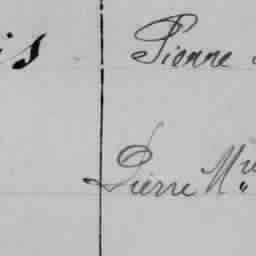 is Pionne
Pierre M